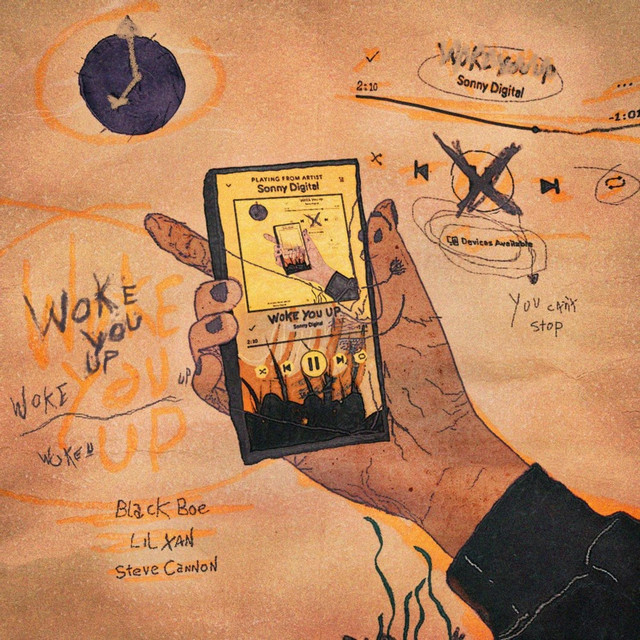 WOKE YOU UP
Sonny Digital
2:10
-1:01
Devices Available
YOU CAN'T
STOP
PLAYING FROM ARTIST
Sonny Digital
WOKE YOU UP
Sonny Digital
2:10
WOKE
YOU
UP
WOKE
YOU
UP
WOKE UP
WOKE U
Black Boe
LIL XAN
Steve Cannon